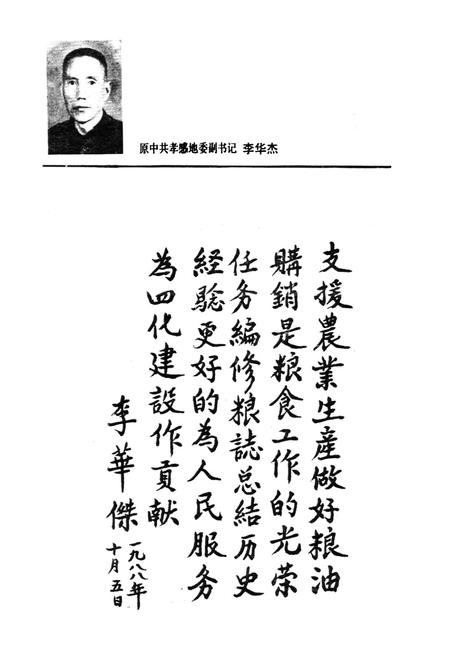 原中共孝感地委副书记 李华杰
支援農業生産做好粮油
購銷是粮食工作的光荣
任务編修粮誌总结历史
经验更好的為人民服务
為四化建設作貢献
李華傑
一九八八年
十月五日